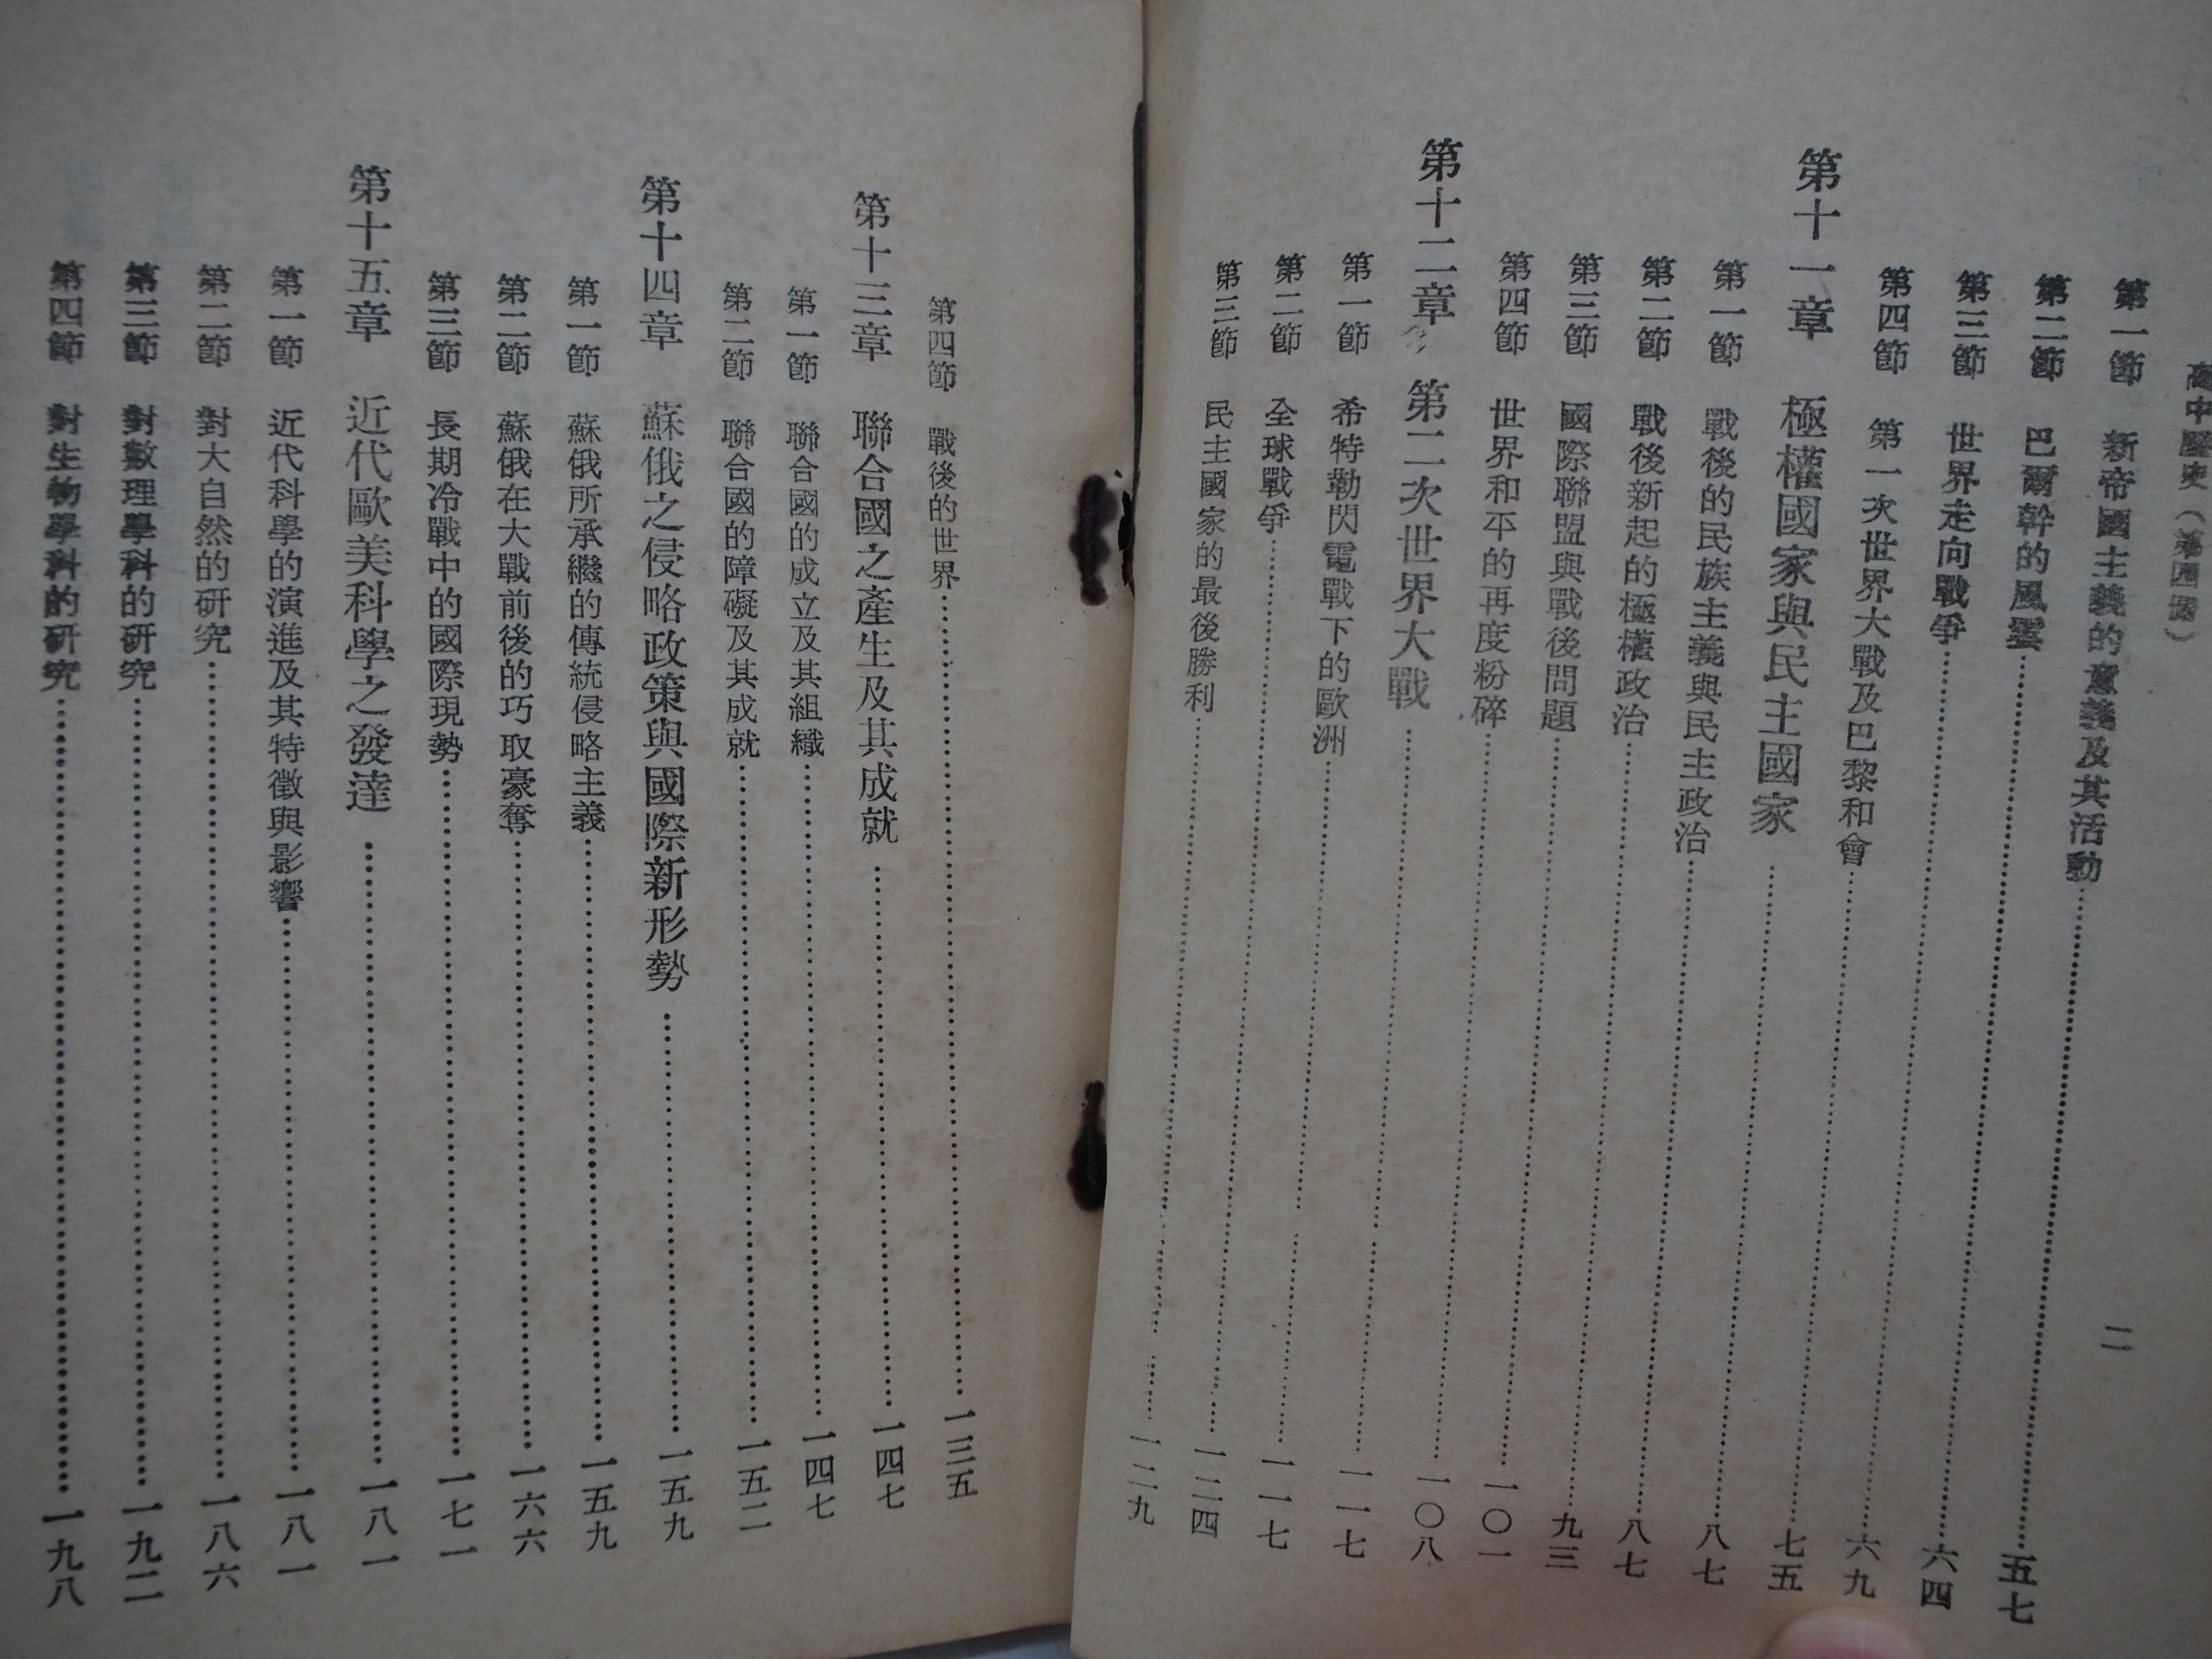 高中歷史（第四冊）　二
第一節　新帝國主義的意義及其活動……五七
第二節　巴爾幹的風雲……六四
第三節　世界走向戰爭……六九
第四節　第一次世界大戰及巴黎和會……七五
第十一章　極權國家與民主國家……八七
第一節　戰後的民族主義與民主政治……八七
第二節　戰後新起的極權政治……九三
第三節　國際聯盟與戰後問題……一〇一
第四節　世界和平的再度粉碎……一〇八
第十二章　第二次世界大戰……一一七
第一節　希特勒閃電戰下的歐洲……一一七
第二節　全球戰爭……一二四
第三節　民主國家的最後勝利……一二九
第四節　戰後的世界……一三五
第十三章　聯合國之產生及其成就……一四七
第一節　聯合國的成立及其組織……一四七
第二節　聯合國的障礙及其成就……一五二
第十四章　蘇俄之侵略政策與國際新形勢……一五九
第一節　蘇俄所承繼的傳統侵略主義……一五九
第二節　蘇俄在大戰前後的巧取豪奪……一六六
第三節　長期冷戰中的國際現勢……一七一
第十五章　近代歐美科學之發達……一八一
第一節　近代科學的演進及其特徵與影響……一八一
第二節　對大自然的研究……一八六
第三節　對數理學科的研究……一九二
第四節　對生物學科的研究……一九八